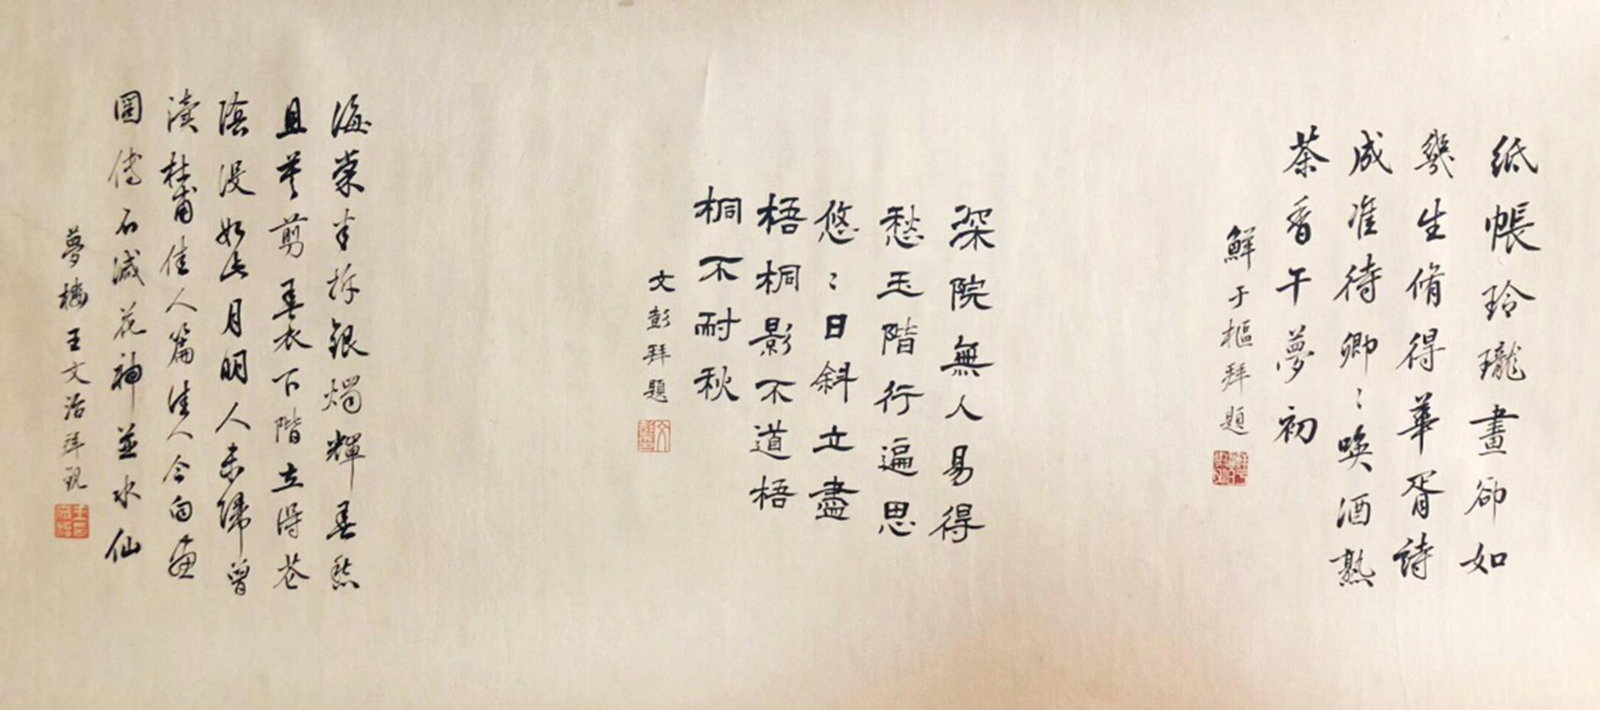 紙帳玲瓏畫卻如
幾生脩得華胥詩
成准待卿〻喚酒熟
茶香午夢初
鮮于樞拜題
深院無人易得
愁玉階行遍思
悠〻日斜立盡
梧桐影不道梧
桐不耐秋
文彭拜題
海棠半拆銀燭輝春愁
且莫剪春衣下階立得苍
陰没如此月明人未歸曾
讀杜甫佳人篇佳人今向画
圖傳石减花神並水仙
夢樓王文治拜觀